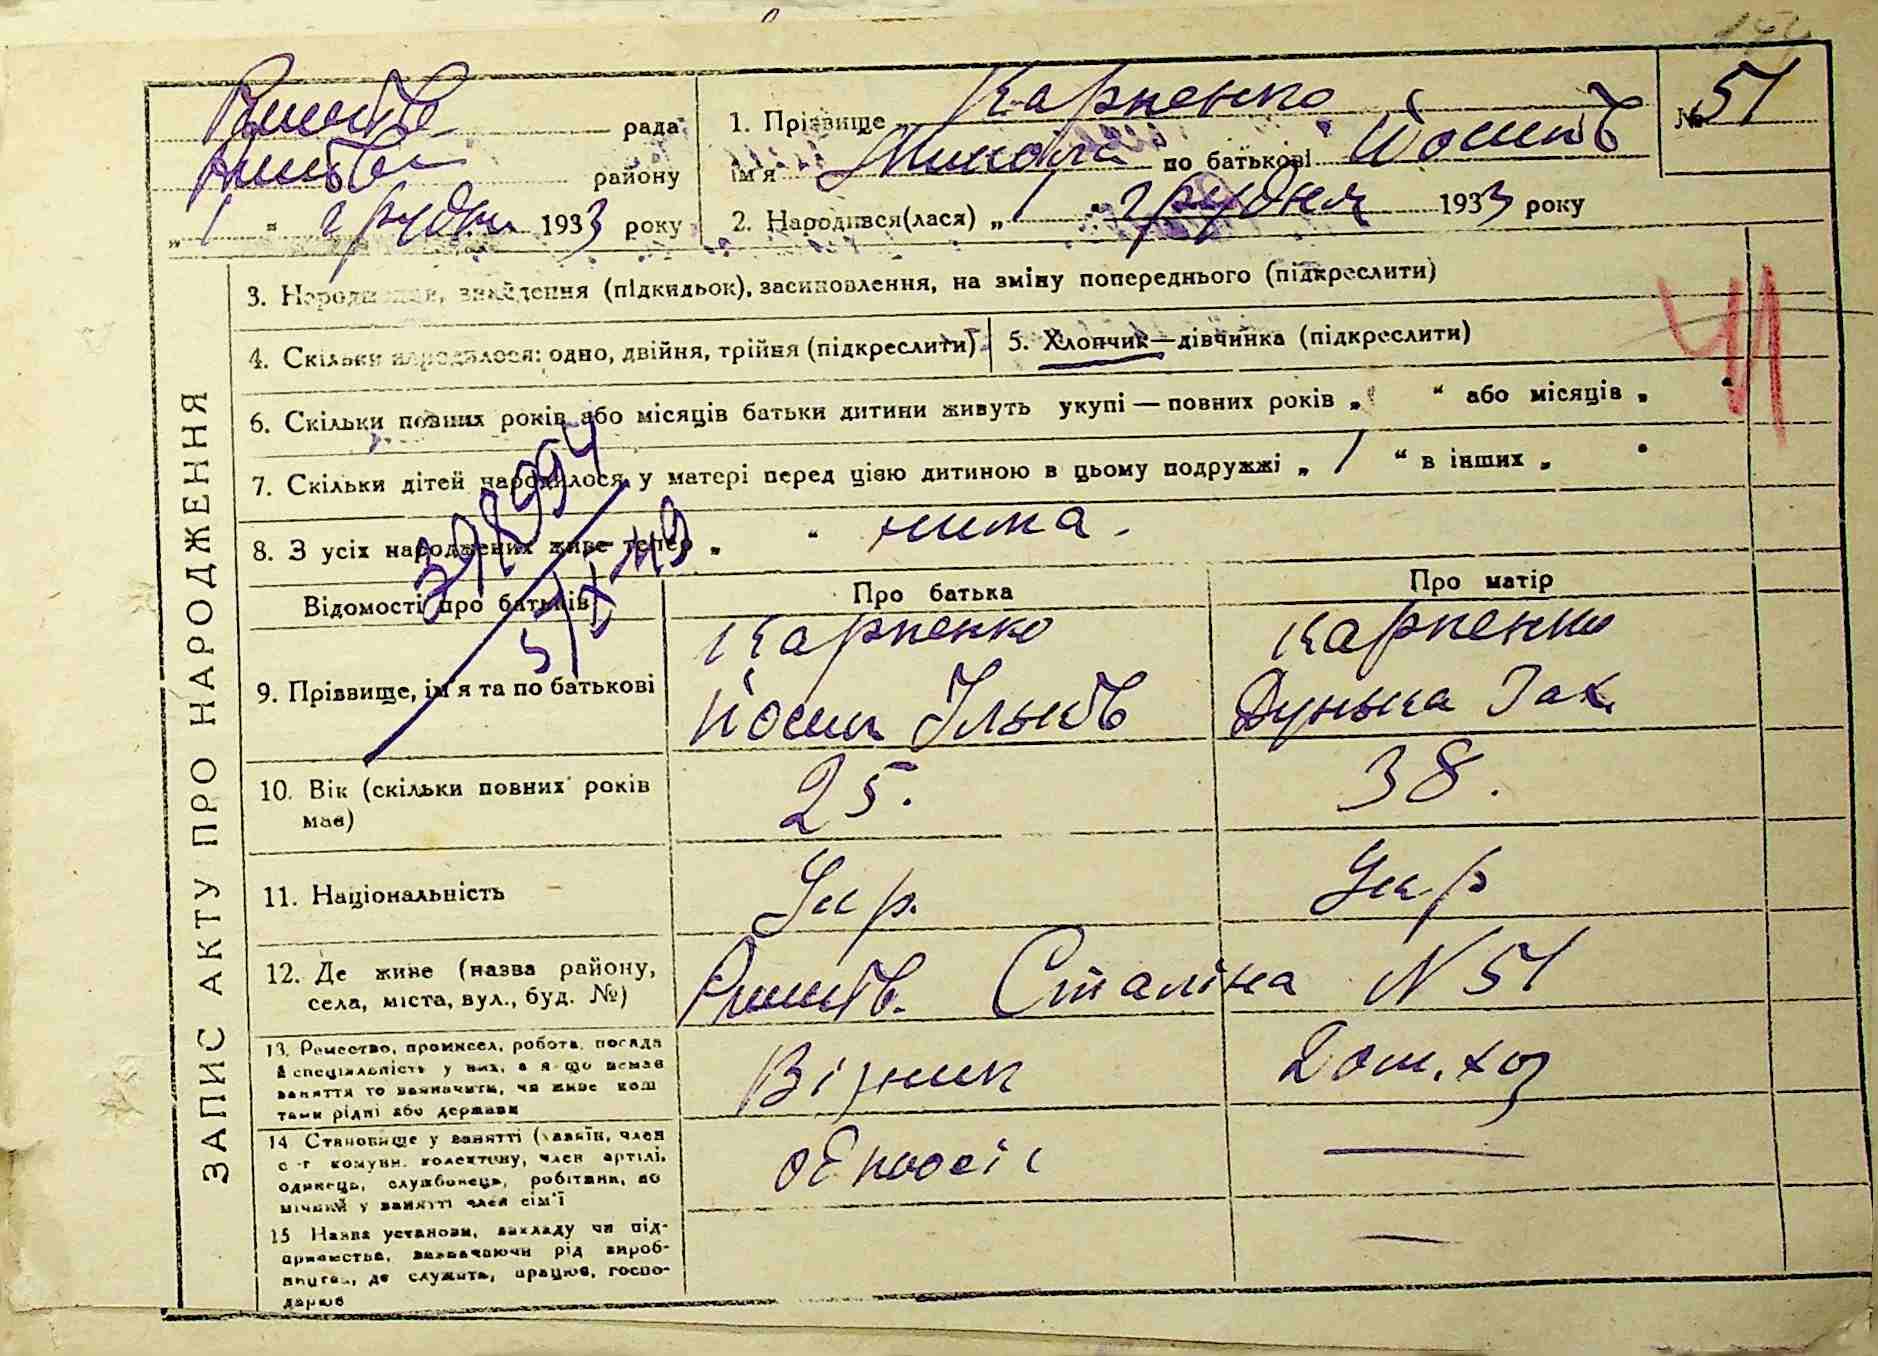 рада
району
„ 1 " грудня 1933 року
1. Прізвище Карпенко
ім'я Микола по батькові Йосипів
2. Народився(лася) „ 1 " грудня 1933 року
№ 51
ЗАПИС АКТУ ПРО НАРОДЖЕННЯ
3. Народження, знайдення (підкидьок), засиновлення, на зміну попереднього (підкреслити)
4. Скільки народилося: одно, двійня, трійня (підкреслити)
5. Хлопчик—дівчинка (підкреслити)
6. Скільки повних років або місяців батьки дитини живуть укупі — повних років „ " або місяців „ "
7. Скільки дітей народилося у матері перед цією дитиною в цьому подружжі „ 1 " в інших „ "
8. З усіх народжених живе тепер „ " нима.
Відомості про батьків
Про батька
Про матір
9. Прізвище, ім'я та по батькові
Карпенко
Йосип Ільків
Карпенко
Дунька Зах.
10. Вік (скільки повних років має)
25.
38.
11. Національність
Укр.
Укр
12. Де живе (назва району,
села, міста, вул., буд. №)
Сталіна N 51
13. Ремество, промисел, робота, посада
й спеціяльність у них, а якщо немає
заняття то зазначити, чи живе кош
тами рідні або держави
Візник
Дом. хоз
14 Становище у занятті (хазяїн, член
с-г комуни, колективу, член артілі,
одинець, службовець, робітник, по
мічний у занятті член сім'ї
15 Назва установи, закладу чи під-
приємства, зазначаючи рід вироб-
ництва, де служить, працює, госпо-
дарює